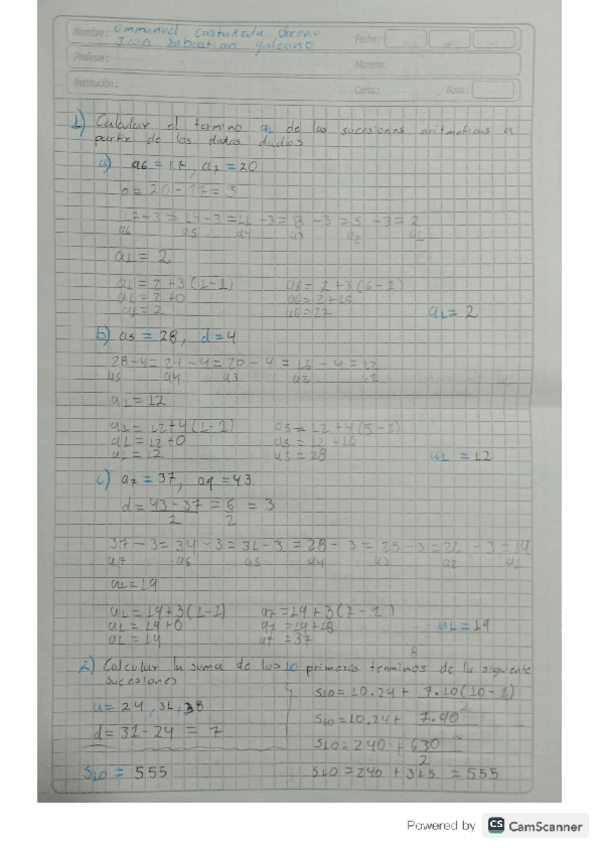 Nombre: Emmanuel Castañeda
Juan Sebastian
Fecha:
Profesor:
Materia:
Institución:
Curso:
Nota:
1) Calcular el termino a1 de las sucesiones aritmeticas a
partir de los datos dados
a) a6 = 17, a7 = 20
= 20 - 17 = 3
17 - 3 = 14 - 3 = 11 - 3 = 8 - 3 = 5 - 3 = 2
a6 a5 a4 a3 a2 a1
a1 = 2
a1 = 2 + 3(1-1) a6 = 2 + 3(6-1)
a1 = 2 + 0 a6 = 2 + 15
a1 = 2 a6 = 17 a1 = 2
b) a5 = 28, d = 4
28 - 4 = 24 - 4 = 20 - 4 = 16 - 4 = 12
a5 a4 a3 a2 a1
a1 = 12
a1 = 12 + 4(1-1) a5 = 12 + 4(5-1)
a1 = 12 + 0 a5 = 12 + 16
a1 = 12 a5 = 28 a1 = 12
c) a7 = 37, a9 = 43
d = 43 - 37 = 6 = 3
2 2
37 - 3 = 34 - 3 = 31 - 3 = 28 - 3 = 25 - 3 = 22 - 3 = 19
a7 a6 a5 a4 a3 a2 a1
a1 = 19
a1 = 19 + 3(1-1) a7 = 19 + 3(7-1)
a1 = 19 + 0 a7 = 19 + 18
a1 = 19 a7 = 37 a1 = 19
2) Calcular la suma de los 10 primeros terminos de la siguiente
sucesiones
a = 24, 31, 38
d = 31 - 24 = 7
S10 = 555
S10 = 10.24 + 7.10(10-1)
2
S10 = 10.24 + 7.90
S10 = 240 + 630
2
S10 = 240 + 315 = 555
Powered by CS CamScanner